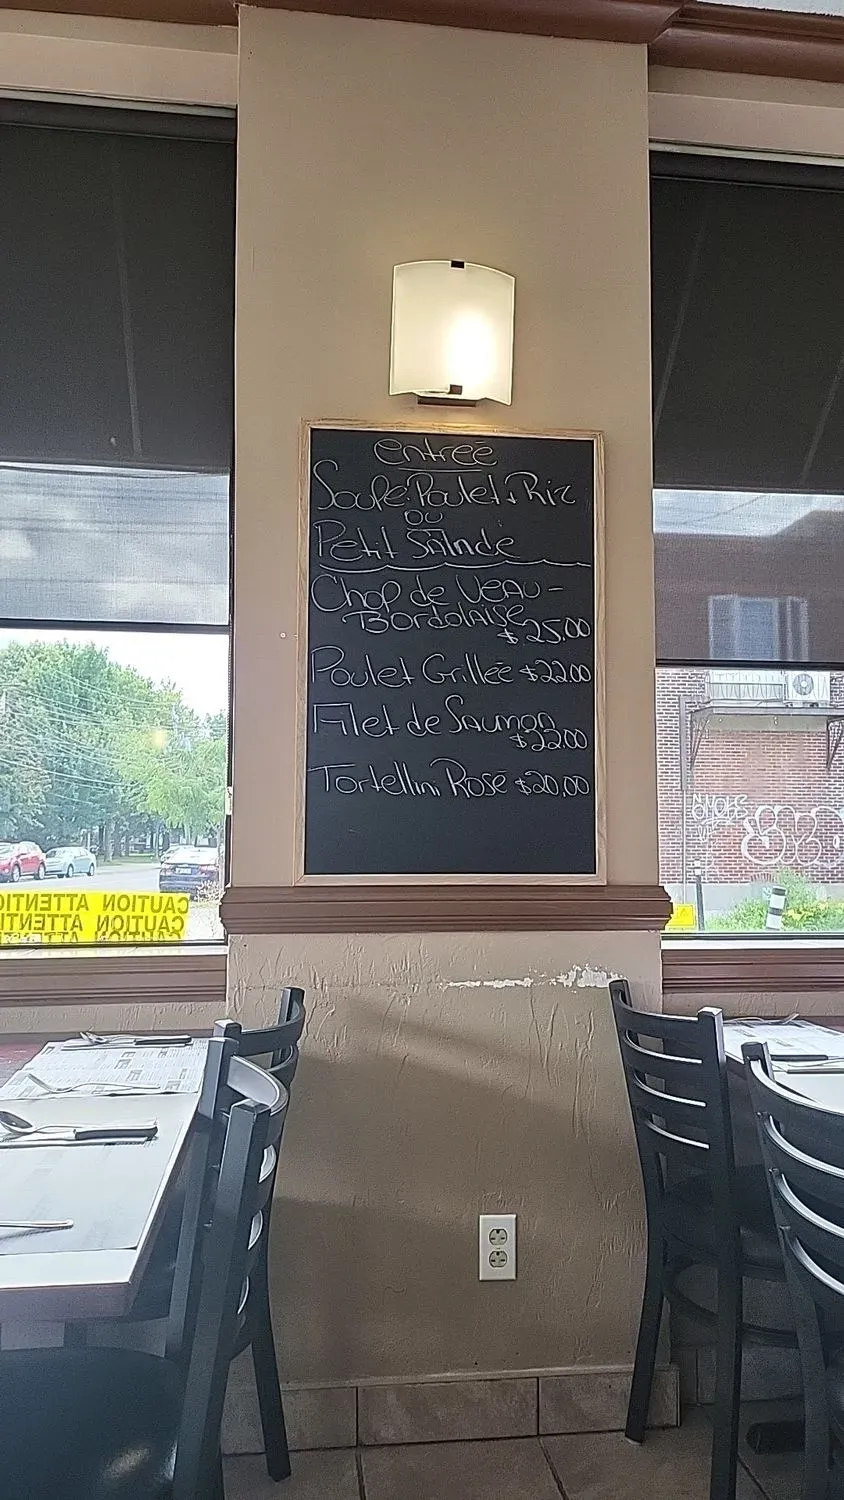 entreé
Soupe: Poulet & Riz
ou
Petit Salade
Chop de Veau -
Bordolaise
$25.00
Poulet Grilleé $22.00
Filet de Saumon
$22.00
Tortellini Rosé $20.00
CAUTION ATTENTIO
CAUTION ATTENTI
CAUTION ATTENTI